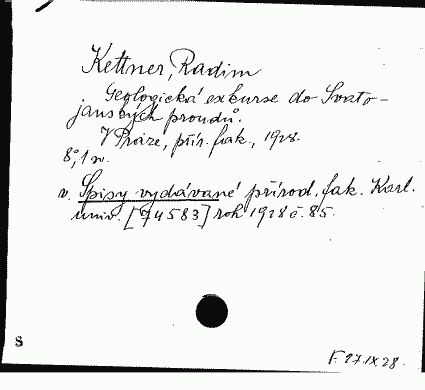 Kettner, Radim
Geologická exkurse do Svato-
janských proudů.
V Praze, přír. fak., 1928.
8°, 1 n.
v. Spisy vydávané přírod. fak. Karl.
univ. [74583] rok 1928 č. 85.
S
F 27.IX 28.